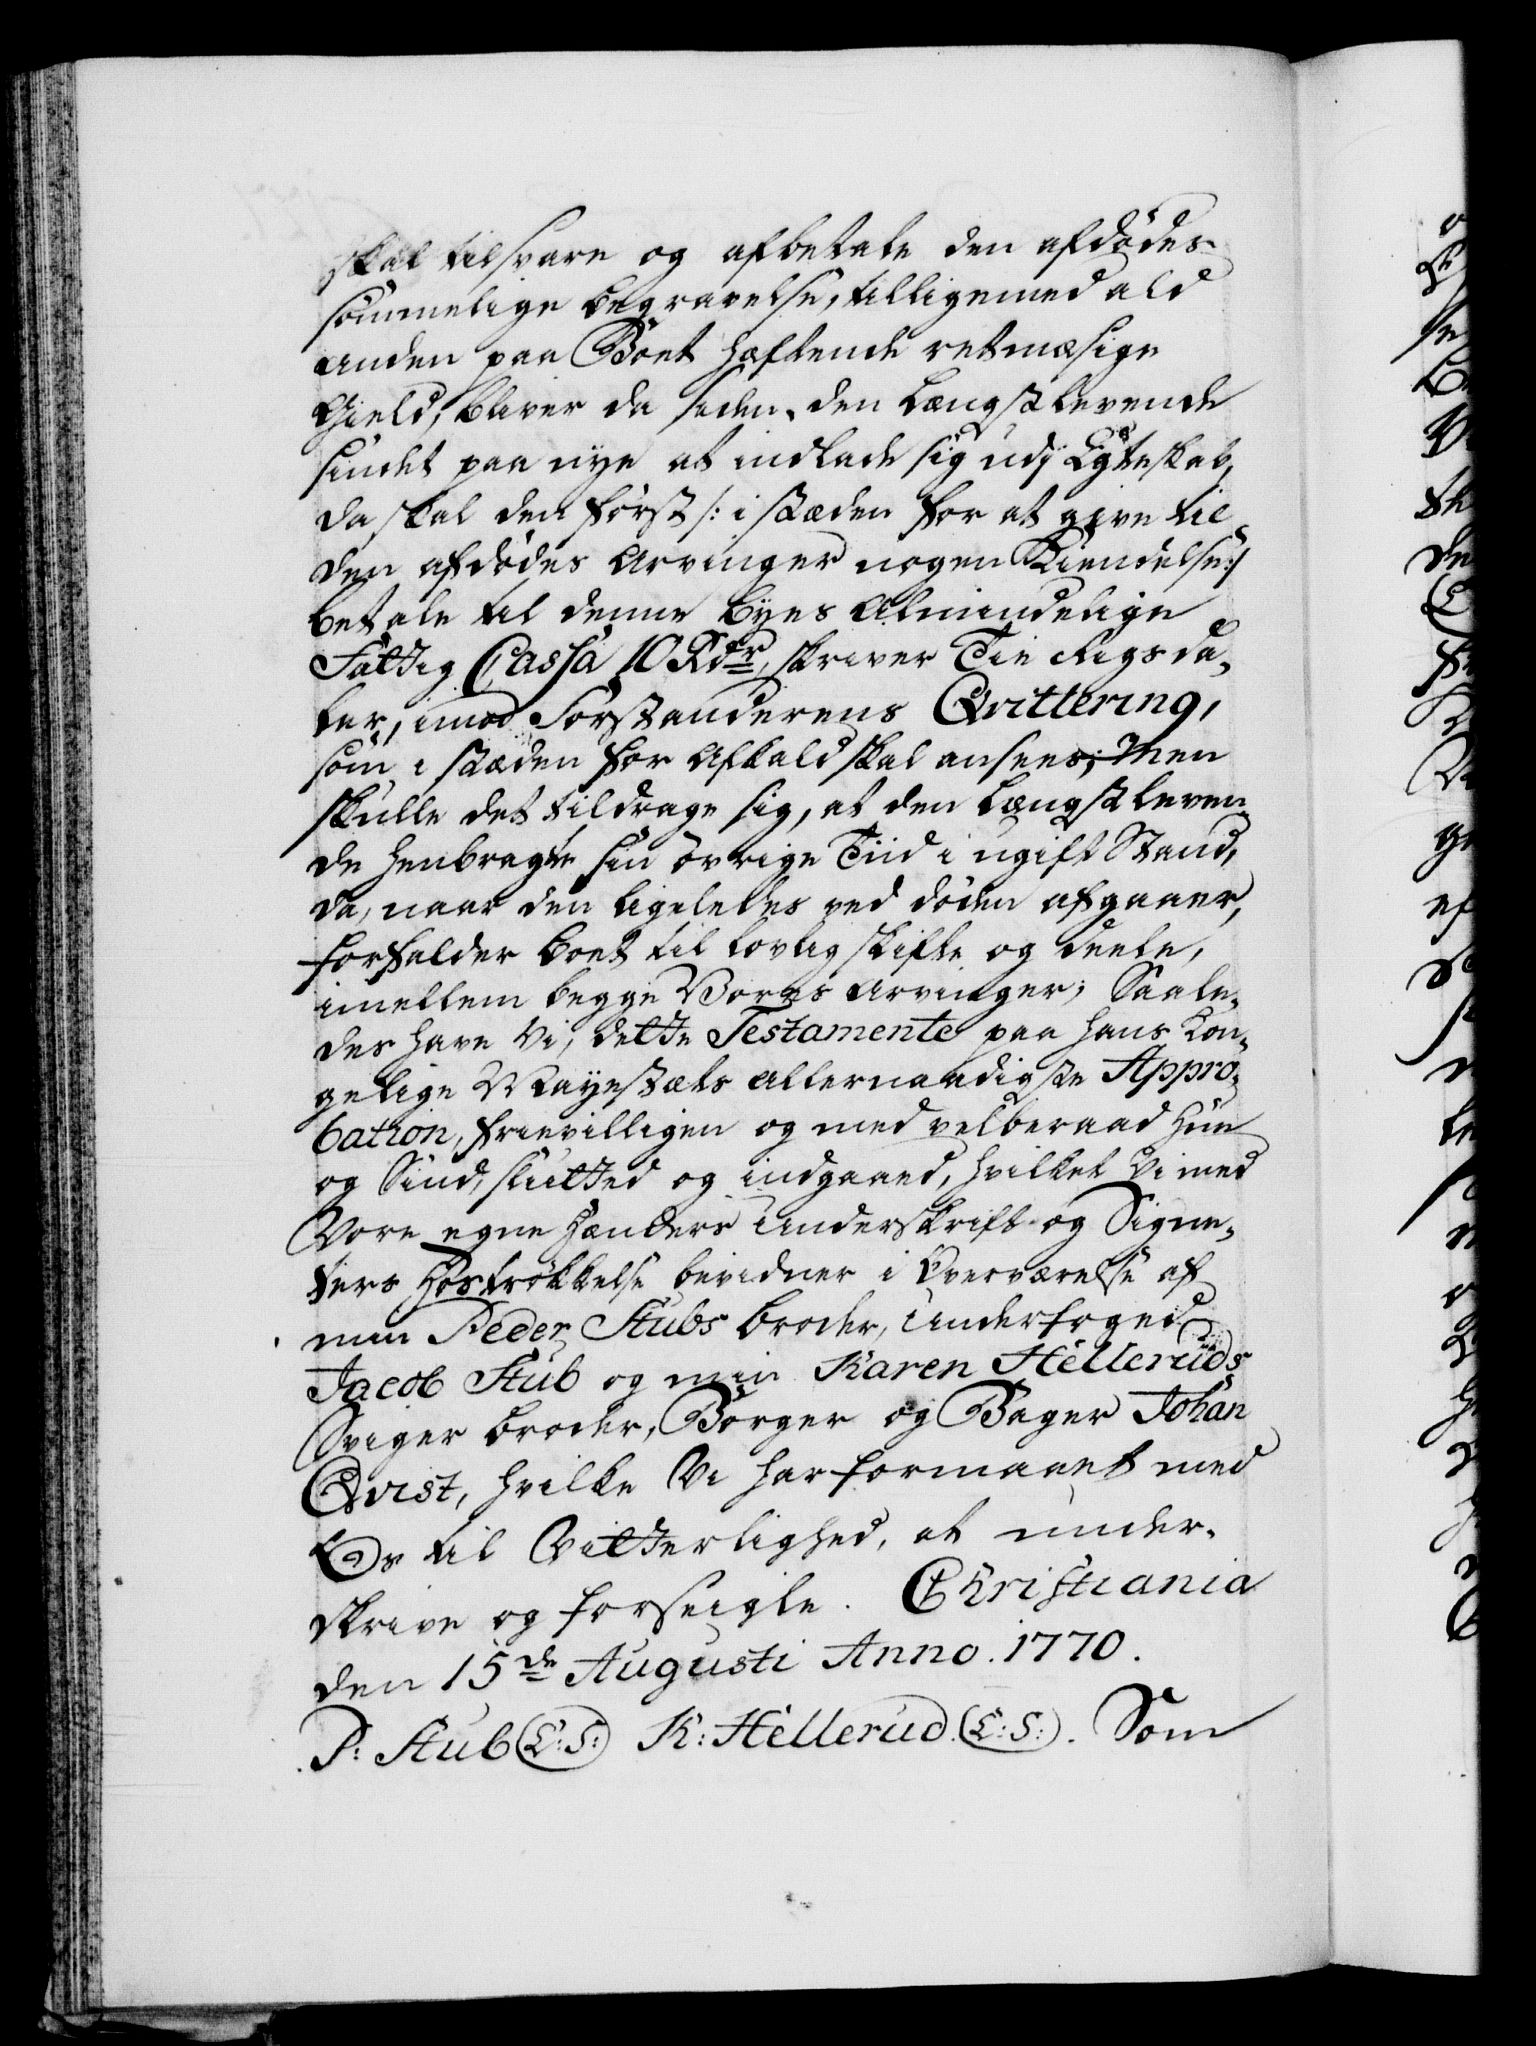 skal tilsvare og afbetale den afdødes
sömmelige begravelse, tilligemed ald
anden paa Boet hæftende retmæsige
Gield; bliver da siden den længstlevende
sindet paa nye at indlade sig udj Egteskab,
da skal den først /: i stæden for at give til
den afdødes Arvinger nogen Kiendelse :/
betale til denne Byes Almindelige
Fattig Cassa 10 Rdr, skriver Tie Rigsda,
ler, imod Forstanderens Qvittering,
som i stæden for Afkald skal ansees; Men
skulle det tildrage sig, at den længstleven,
de henbragte sin øvrige Tiid i ugift Stand,
da, naar den ligeledes ved døden afgaaer,
forfalder Boet til lovlig skifte og deele,
imellem begge Vores Arvinger; Saale,
des have Vi, dette Testamente paa Hans Kon,
gelige Mayestæts allernaadigste Appro,
bation, frievilligen og med velberaad Hue
og Sind, slutted og indgaaed, hvilket Vi med
Vore egne Hænders Underskrift og Signe,
ters Hoströkkelse bevidner i Overværelse af
min Peder Stubs broder, Underfoged
Jacob Stub og min Karen Helleruds
Sviger broder, Borger og Bager Johan
Qvist, hvilke Vi har formaaet med
Os til Vitterlighed, at under,
skrive og forseigle. Christiania
den 15de Augusti Anno. 1770.
P: Stub (L:S:) K: Hellerud. (L:S:). Som